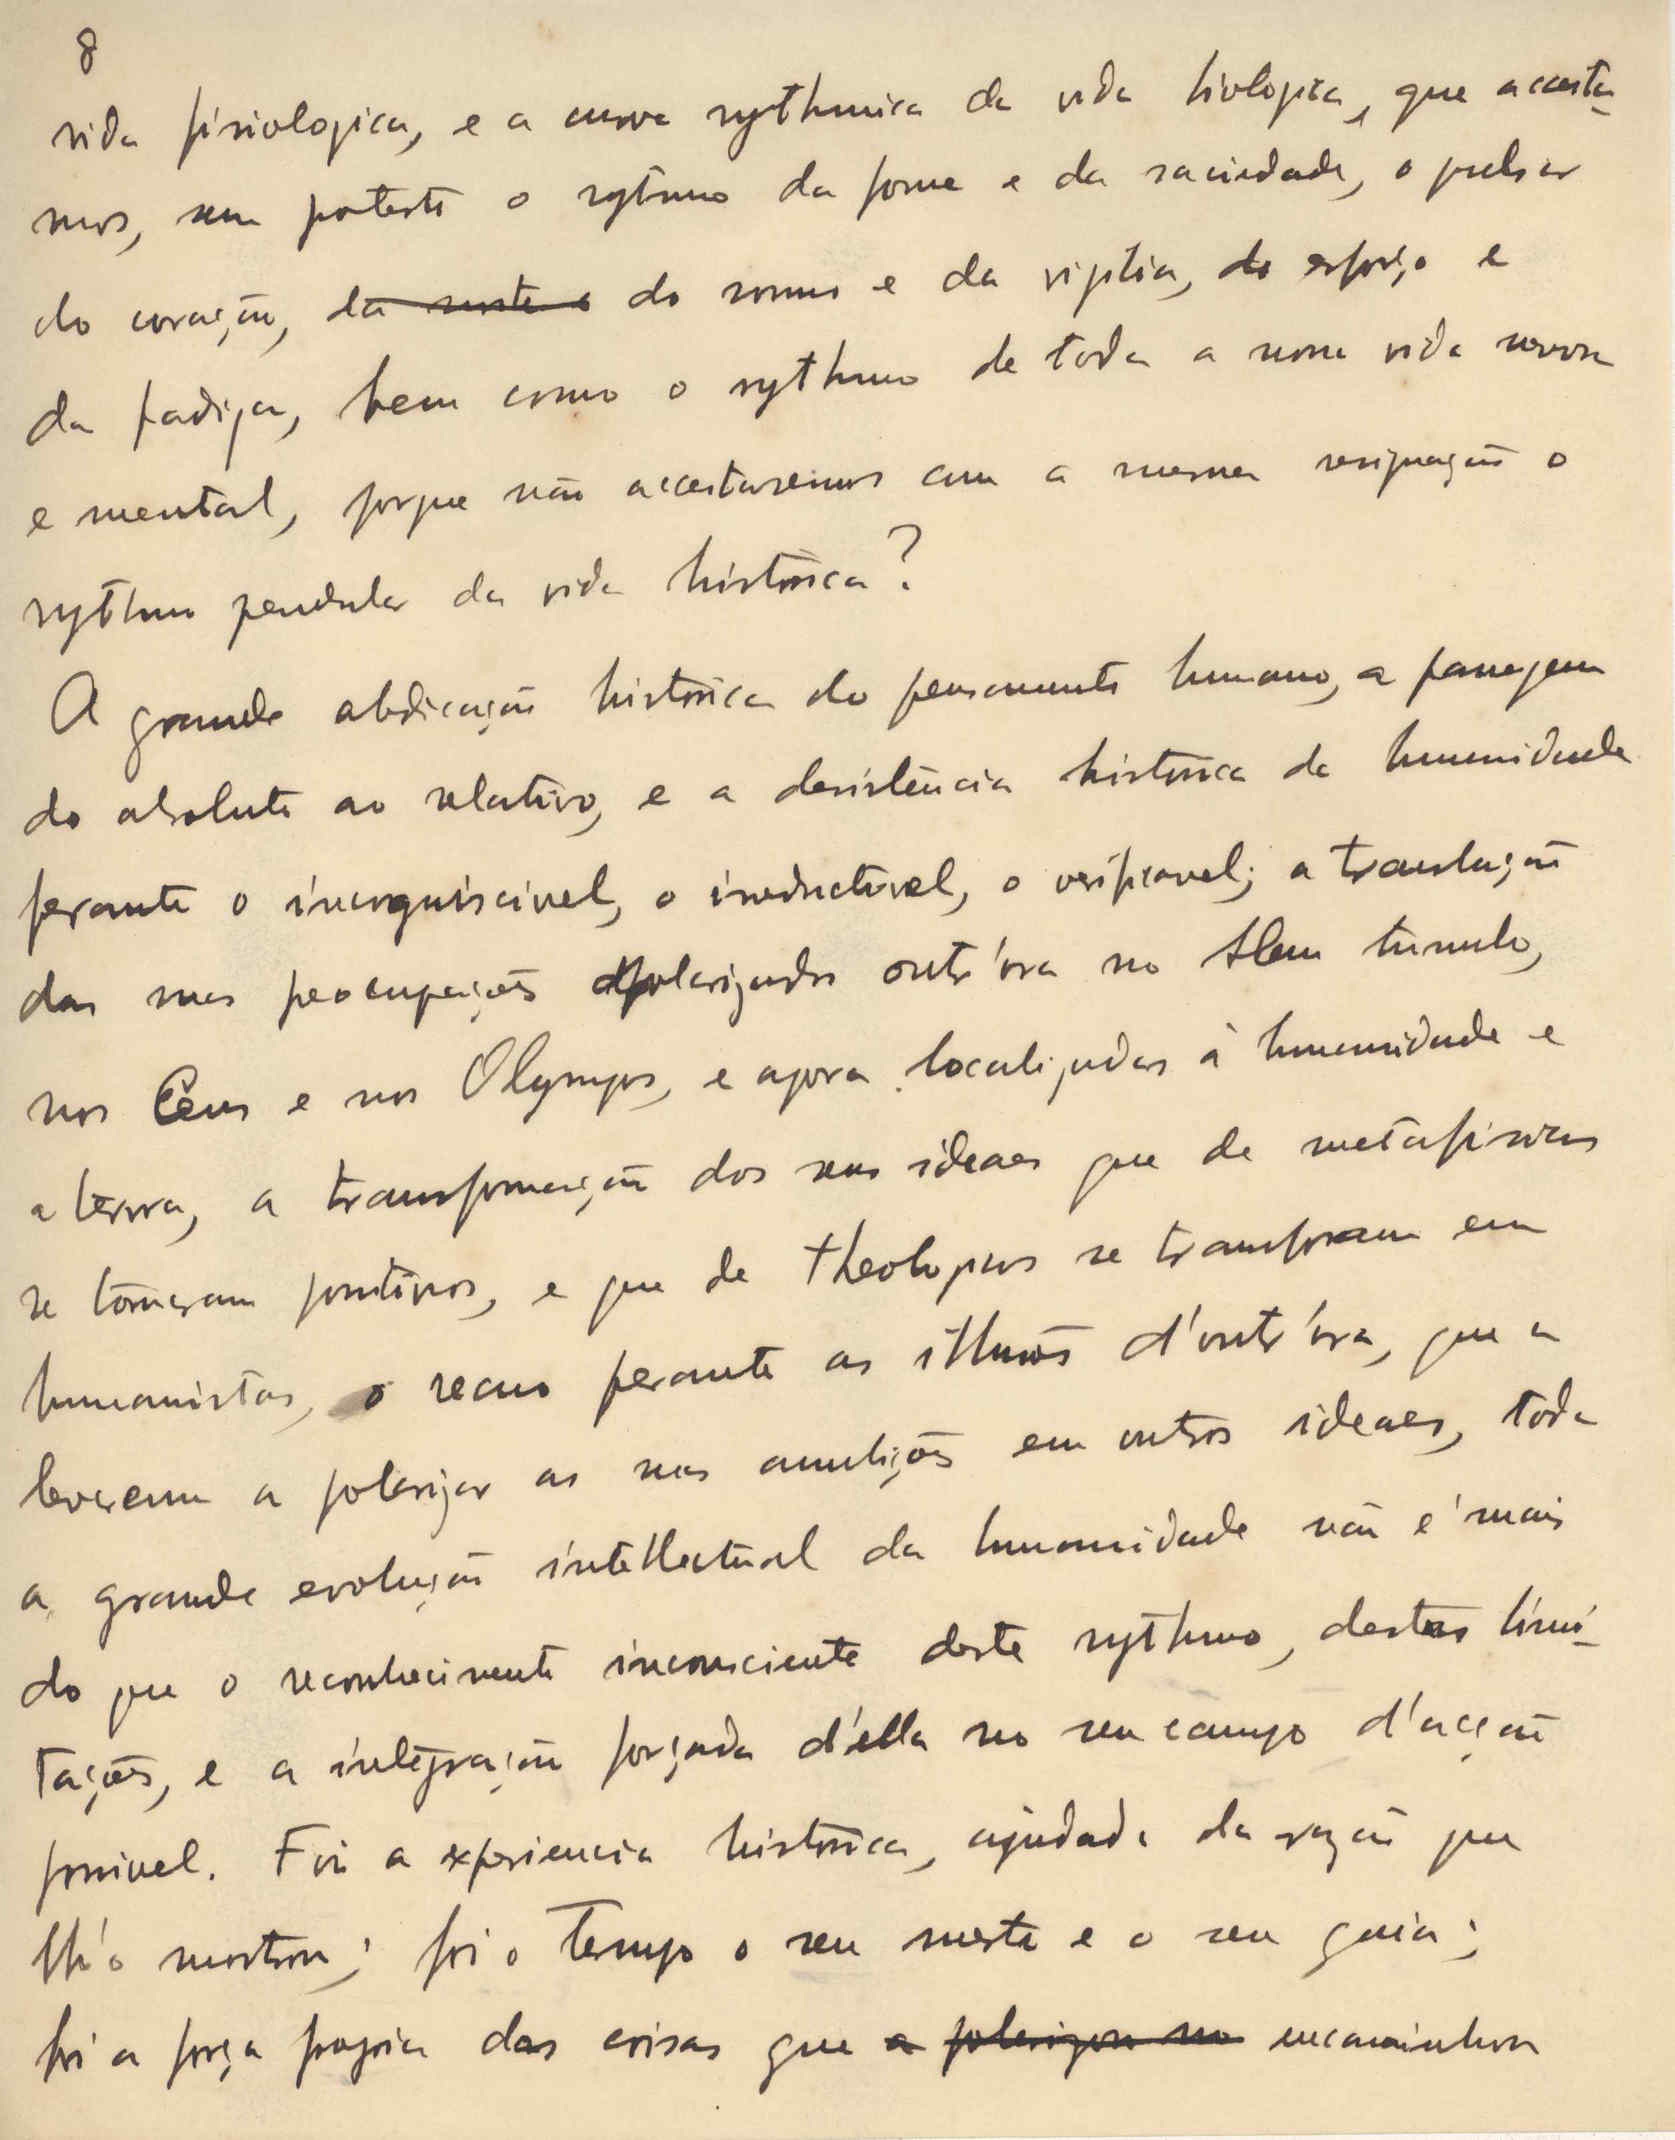 8
vida fisiologica, e a curva rythmica da vida biologica, que acceita-
mos, sem protesto o rythmo da fome e da saciedade, o pulsar
do coração, da morte e do somno e da vigilia, do esforço e
da fadiga, bem como o rythmo de toda a nossa vida nervosa
e mental, porque não acceitaremos com a mesma resignação o
rythmo pendular da vida histórica?
A grande abdicação histórica do pensamento humano, a passagem
do absoluto ao relativo, e a desistência histórica da humanidade
perante o incognoscivel, o irreductivel, o verificavel; a translação
das suas preocupações polarizadas outr'ora no Alem tumulo,
nos Céus e nos Olympos, e agora localizadas á humanidade e
a terra, a transformação dos seus ideaes que de metafisicos
se tornaram positivos, e que de theologicos se transformam em
humanistas, o recuo perante as illusões d'outr'ora, que a
levaram a polarizar as suas ambições em outros ideaes, toda
a grande evolução intellectual da humanidade não é mais
do que o reconhecimento inconsciente deste rythmo, destas limi-
tações, e a integração forçada d'ella no seu campo d'acção
possivel. Foi a experiencia histórica, ajudada da razão que
lh'o mostrou; foi o Tempo o seu mestre e o seu guia;
foi a força propria das coisas que a polarizou no encaminhou